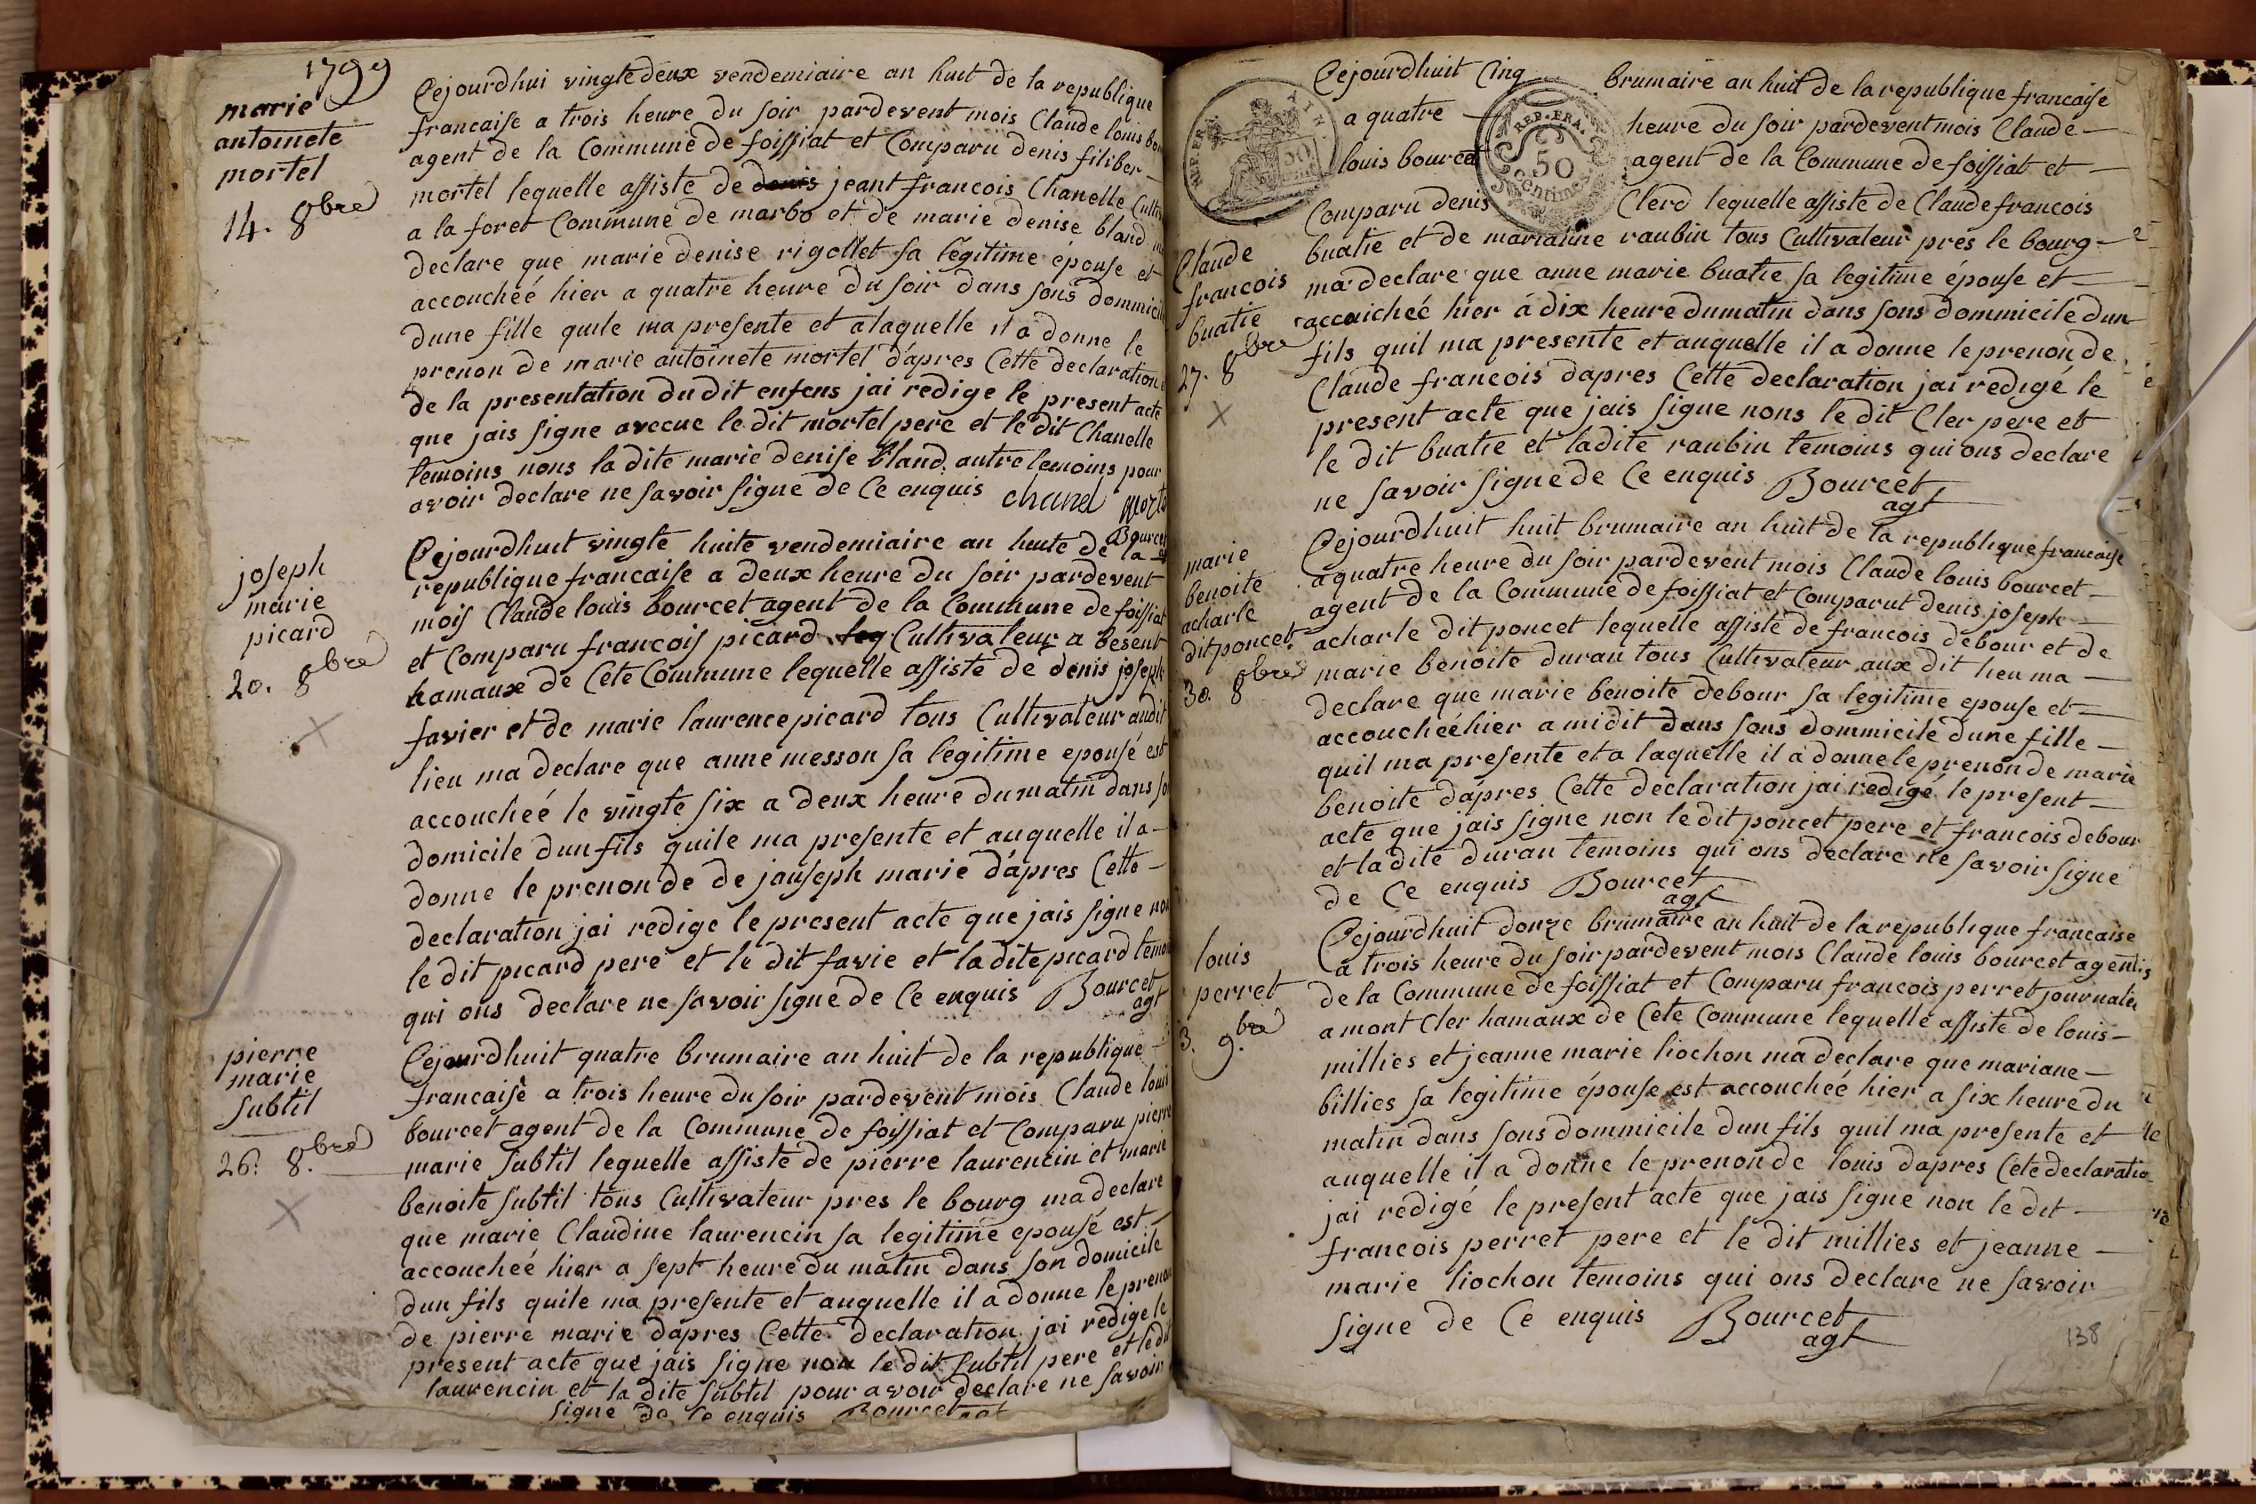 1799
marie
antoinete
mortel
14. 8bre
Cejourdhui vingte deux vendemiaire an huit de la republique
francaise a trois heure du soir pardevent mois Claude louis
agent de la Commune de foissiat et Comparu denis filiber
mortel lequelle assiste de denis jeant francois Chanelle
a la foret Commune de marbo et de marie denise bland
declare que marie denise rigollet sa legitime épouse et
accoucheé hier a quatre heure du soir dans sons dommicile
dune fille quile ma presente et a laquelle il a donne le
prenon de marie antoinete mortel d'apres Cette declaration
de la presentation du dit enfens jai redige le present acte
que jais signe avecue le dit mortel pere et le dit Chanelle
temoins nons la dite marie denise bland autre temoins pour
avoir declare ne savoir signe de Ce enquis chanel
Bourcet
joseph
marie
picard
20. 8bre
Cejourdhuit vingte huite vendemiaire an huite de la
republique francaise a deux heure du soir pardevent
mois Claude louis bourcet agent de la Commune de foissiat
et Comparu francois picard leq Cultivateur a besent
hamaux de Cete Commune lequelle assiste de denis joseph
favier et de marie laurence picard tous Cultivateur audit
lieu ma declare que anne messon sa legitime epousé est
accoucheé le vingte six a deux heure du matin dans
domicile dun fils quile ma presente et auquelle il a
donne le prenon de de jauseph marie d'apres Cette
declaration jai redige le present acte que jais signe non
le dit picard pere et le dit favie et la dite picard
qui ons declare ne savoir signe de Ce enquis Bourcet
agt
pierre
marie
subtil
26. 8bre
Cejourdhuit quatre brumaire an huit de la republique
francaise a trois heure du soir pardevent mois Claude louis
bourcet agent de la Commune de foissiat et Comparu pierre
marie subtil lequelle assiste de pierre laurencin et marie
benoite subtil tous Cultivateur pres le bourg ma declare
que marie Claudine laurencin sa legitime epousé est
accoucheé hier a sept heure du matin dans son domicile
dun fils quile ma presente et auquelle il a donne le prenon
de pierre marie dapres Cette declaration jai redige le
present acte que jais signe non le dit subtil pere et le dit
laurencin et la dite subtil pour avoir declare ne savoir
signe de Ce enquis Bourcet agt
Cejourdhuit Cinq brumaire an huit de la republique francaise
a quatre heure du soir pardevent mois Claude
louis bourcet agent de la Commune de foissiat et
REP. FRA.
50
centimes
Comparu denis Clerd lequelle assiste de Claude francois
buatie et de marianne raubin tous Cultivateur pres le bourg
ma declare que anne marie buatie sa legitime épouse et
accaicheé hier á dix heure du matin dans sons dommicile dun
fils quil ma presente et auquelle il a donne le prenon de
Claude francois dapres Cette declaration jai redigé le
present acte que jais signe nons le dit Cler pere et
le dit buatie et ladite raubin temoins qui ons declare
ne savoir signe de Ce enquis Bourcet
agt
Claude
francois
buatie
27. 8bre
marie
benoite
acharle
dit poncet
30. 8bre
Cejourdhuit huit brumaire an huit de la republique francaise
a quatre heure du soir pardevent mois Claude louis bourcet
agent de la Commune de foissiat et Comparut denis joseph
acharle dit poncet lequelle assiste de francois debour et de
marie benoite durau tous Cultivateur aux dit lieu ma
declare que marie benoite debour sa legitime epouse et
accoucheé hier a midit dans sons dommicile dune fille
quil ma presente et a laquelle il a donne le prenon de marie
benoite dapres Cette declaration jai redigé le present
acte que jais signe non le dit poncet pere et francois debour
et la dite durau temoins qui ons declare ne savoir signe
de Ce enquis Bourcet
agt
louis
perret
3. 9bre
Cejourdhuit donze brumaire an huit de la republique francaise
a trois heure du soir pardevent mois Claude louis bourcet agent
de la Commune de foissiat et Comparu francois perret journalier
a mont Cler hamaux de Cete Commune lequelle assiste de louis
millies et jeanne marie liochon ma declare que mariane
billies sa legitime épouse est accoucheé hier a six heure du
matin dans sons dommicile dun fils quil ma presente et
auquelle il a donne le prenon de louis dapres Cete declaratio
jai redigé le present acte que jais signe non le dit
francois perret pere et le dit millies et jeanne
marie liochon temoins qui ons declare ne savoir
signe de Ce enquis Bourcet
agt
138